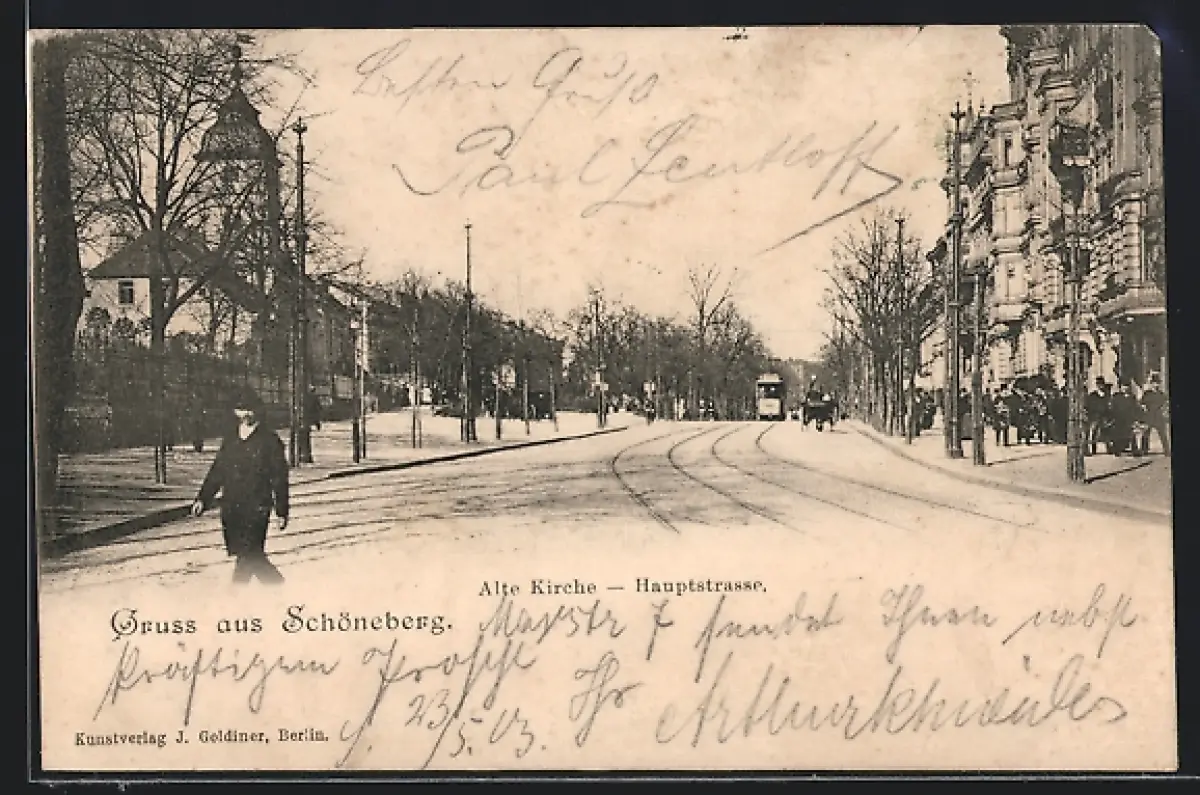 Besten Gruß
Paul Zenthoff
Alte Kirche — Hauptstrasse.
Gruss aus Schöneberg.
7 sendet Ihnen nebst
kräftigem Prosst
23/5.03. Ihr Arthur
Kunstverlag J. Goldiner, Berlin.